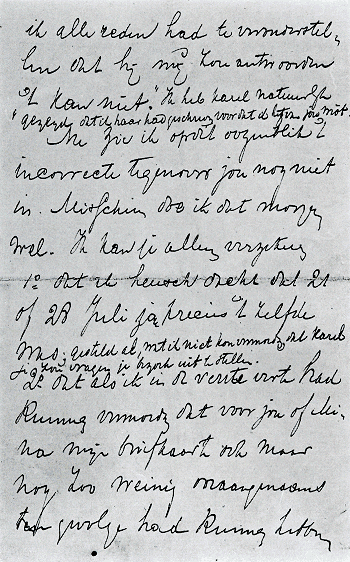 ik alle reden had te veronderstel-
len dat hij mij zou antwoorden
"'t kan niet." Ik heb Karel natuurlijk
gezegd, dat ik haar had geschreven voordat ik bij jou was.
Nu zie ik op dit oogenblik 't
incorrecte tegenover jou nog niet
in. Misschien doe ik dat morgen
wel. Ik kan je alleen verzekeren
1º dat ik heusch dacht dat 21
of 28 Juli ja precies 't zelfde
was; gesteld al, wat ik niet kon vermoeden, dat Karel
je zou vragen je bezoek uit te stellen.
2º dat als ik in de verste verte had
kunnen vermoeden dat voor jou of Mi-
na mijn briefkaart ook maar
nog zoo weinig onaangenaams
ten gevolge had kunnen hebben